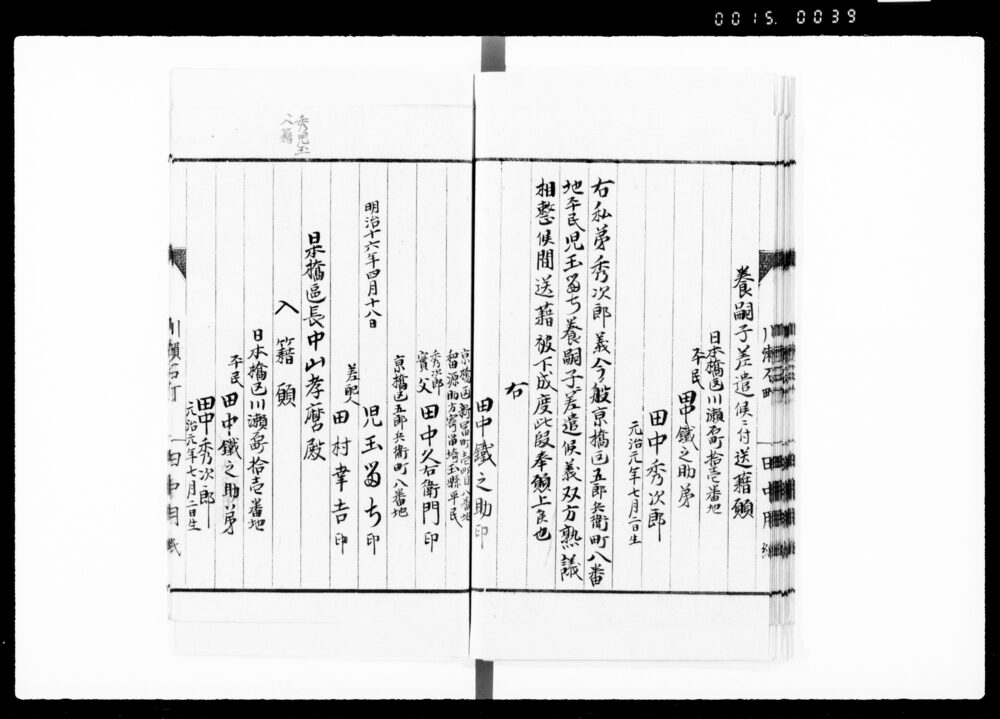 0015. 0039
養嗣子差遣候ニ付送籍願
日本橋区川瀬石町拾壱番地
平民
田中鐵之助弟
田中秀次郎
元治元年七月二日生
右私弟秀次郎義今般京橋区五郎兵衛町八番
地平民児玉留ち養嗣子差遣候義双方熟議
相整候間送籍被下成度此段奉願上候也
右
田中鐵之助印
京橋区新富町壱町目八番地
留源助方寄留埼玉縣平民
秀次郎
實父
田中久右衛門印
京橋区五郎兵衛町八番地
児玉留ち印
差配人
田村幸吉印
明治十六年四月十八日
日本橋區長中山孝麿殿
入籍願
日本橋区川瀬石町拾壱番地
平民
田中鐵之助弟
田中秀次郎
元治元年七月二日生
秀児玉
入籍
川瀬石町
田中用紙
川瀬石町
田中用紙